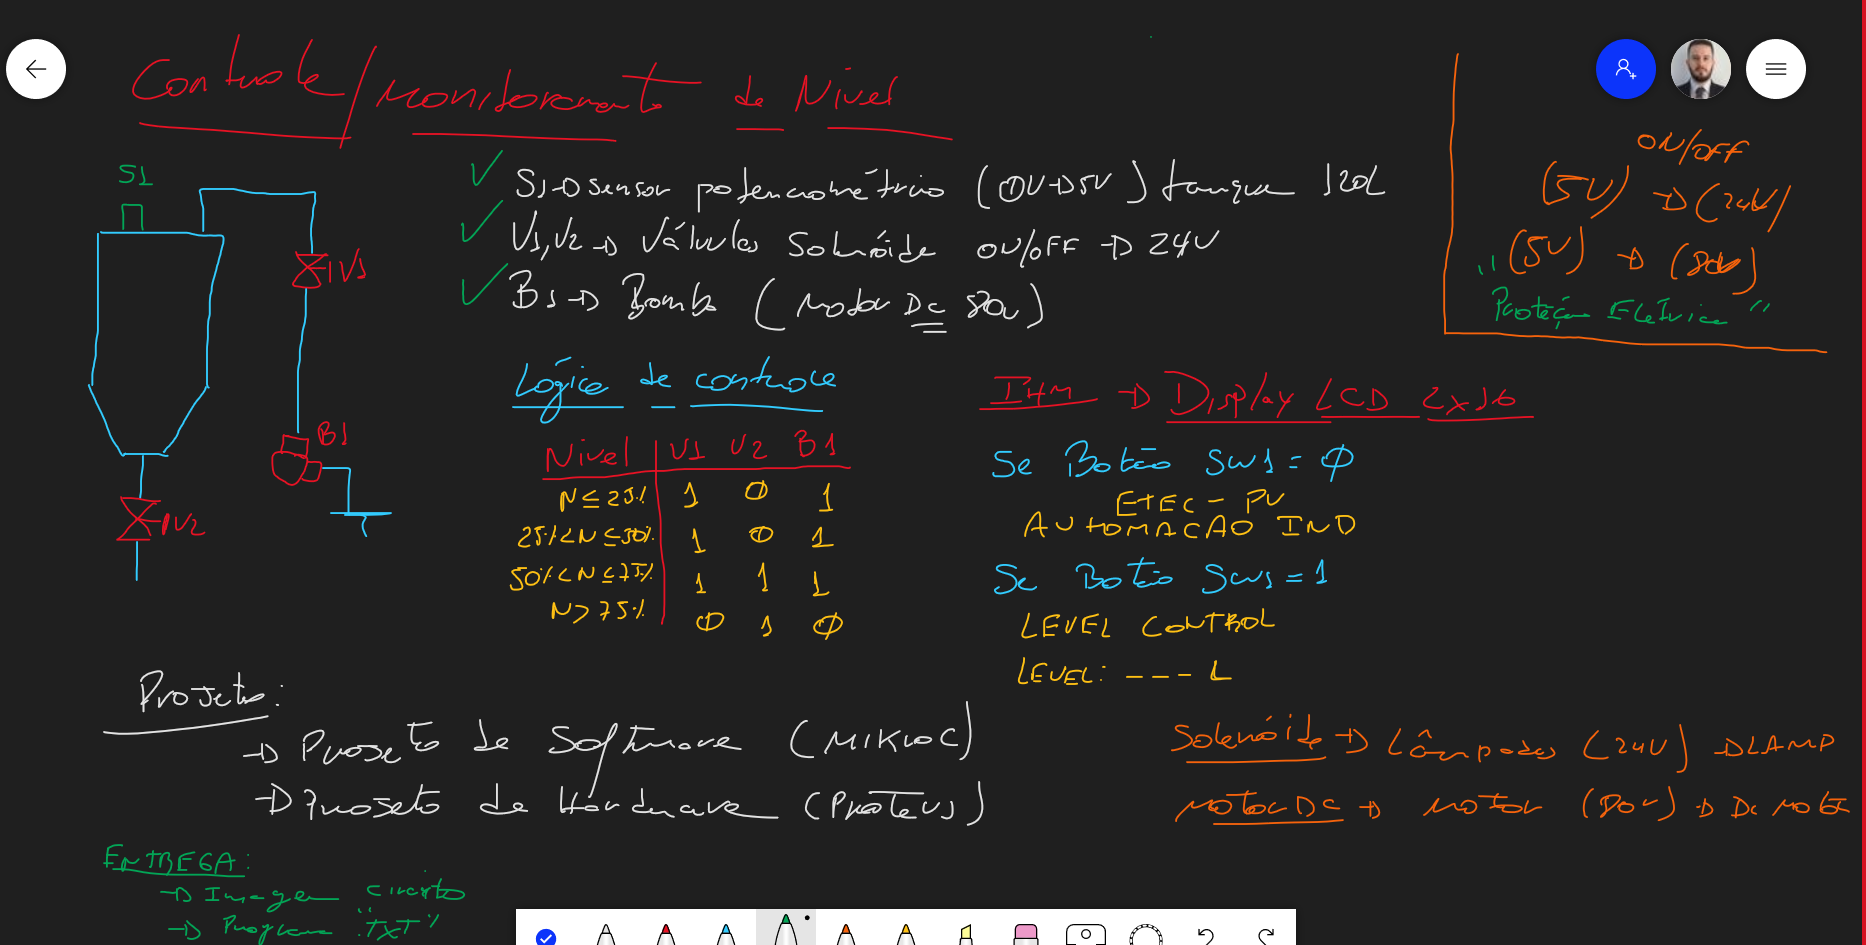 Controle/monitoramento de Nível
S1
S1→sensor potenciométrico (0V→5V) tanque 120L
V1,V2→ Válvulas Solenóide ON/OFF → 24V
B1→ Bomba (motor DC 80v)
V1
B1
V2
ON/OFF
(5V) → (24V)
(5V) → (80v)
"Proteção Elétrica"
Lógica de controle
Nível V1 V2 B1
N ≤ 25% 1 0 1
25% < N ≤ 50% 1 0 1
50% < N ≤ 75% 1 1 1
N > 75% 0 1 0
IHM → Display LCD 2x16
Se Botão SW1 = 0
ETEC - PV
AUTOMACAO IND
Se Botão SW1 = 1
LEVEL CONTROL
LEVEL: --- L
Projeto:
→ Projeto de Software (MIKROC)
→ Projeto de Hardware (PROTEUS)
Solenóide → Lâmpadas (24V) → LAMP
Motor DC → Motor (80v) →
ENTREGA:
→ Imagem circuito
→ Programa "TXT"